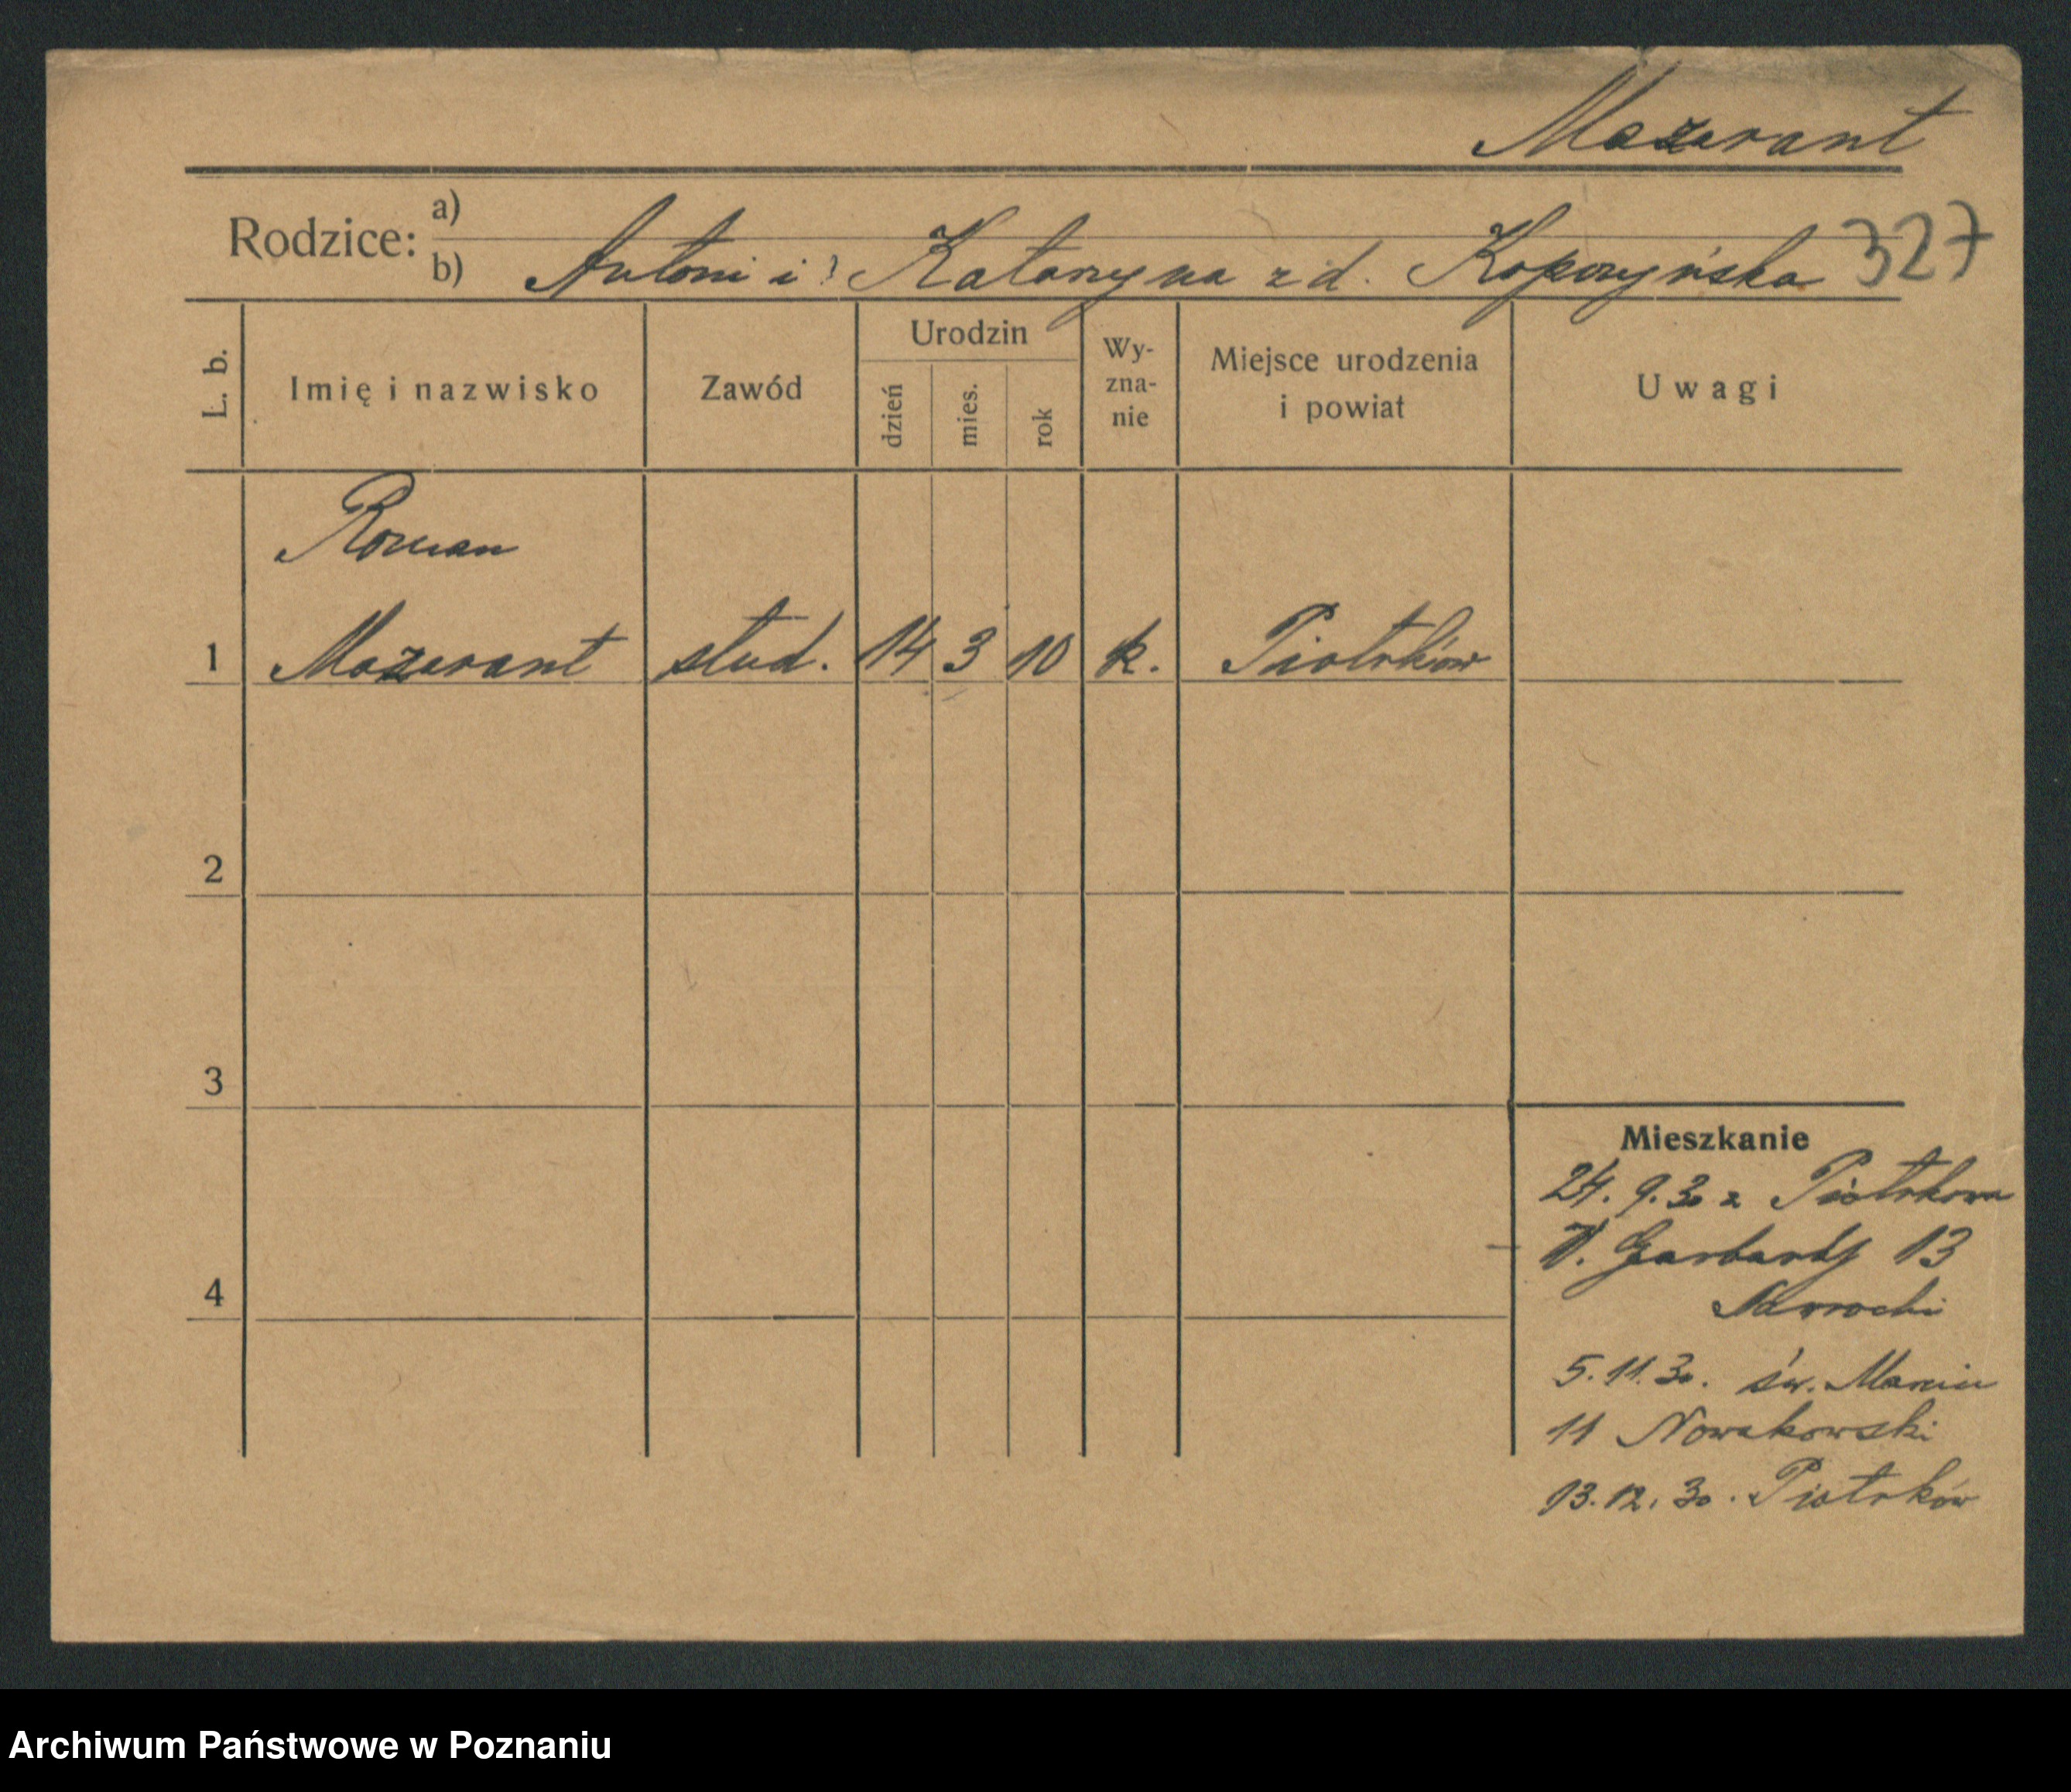 Mazerant
Rodzice: a)
b) Antoni i Katarzyna z d. Kopczyńska 327
L. b.
Imię i nazwisko
Zawód
Urodzin
dzień
mies.
rok
Wy-
zna-
nie
Miejsce urodzenia
i powiat
Uwagi
Roman
1 Mazerant stud. 14 3 10 k. Piotrków
2
3
4
Mieszkanie
24. 9. 30 z Piotrkowa
Garbary 13
Nawrocki
5. 11. 30. św. Marcin
11 Nowakowski
13. 12. 30. Piotrków
Archiwum Państwowe w Poznaniu